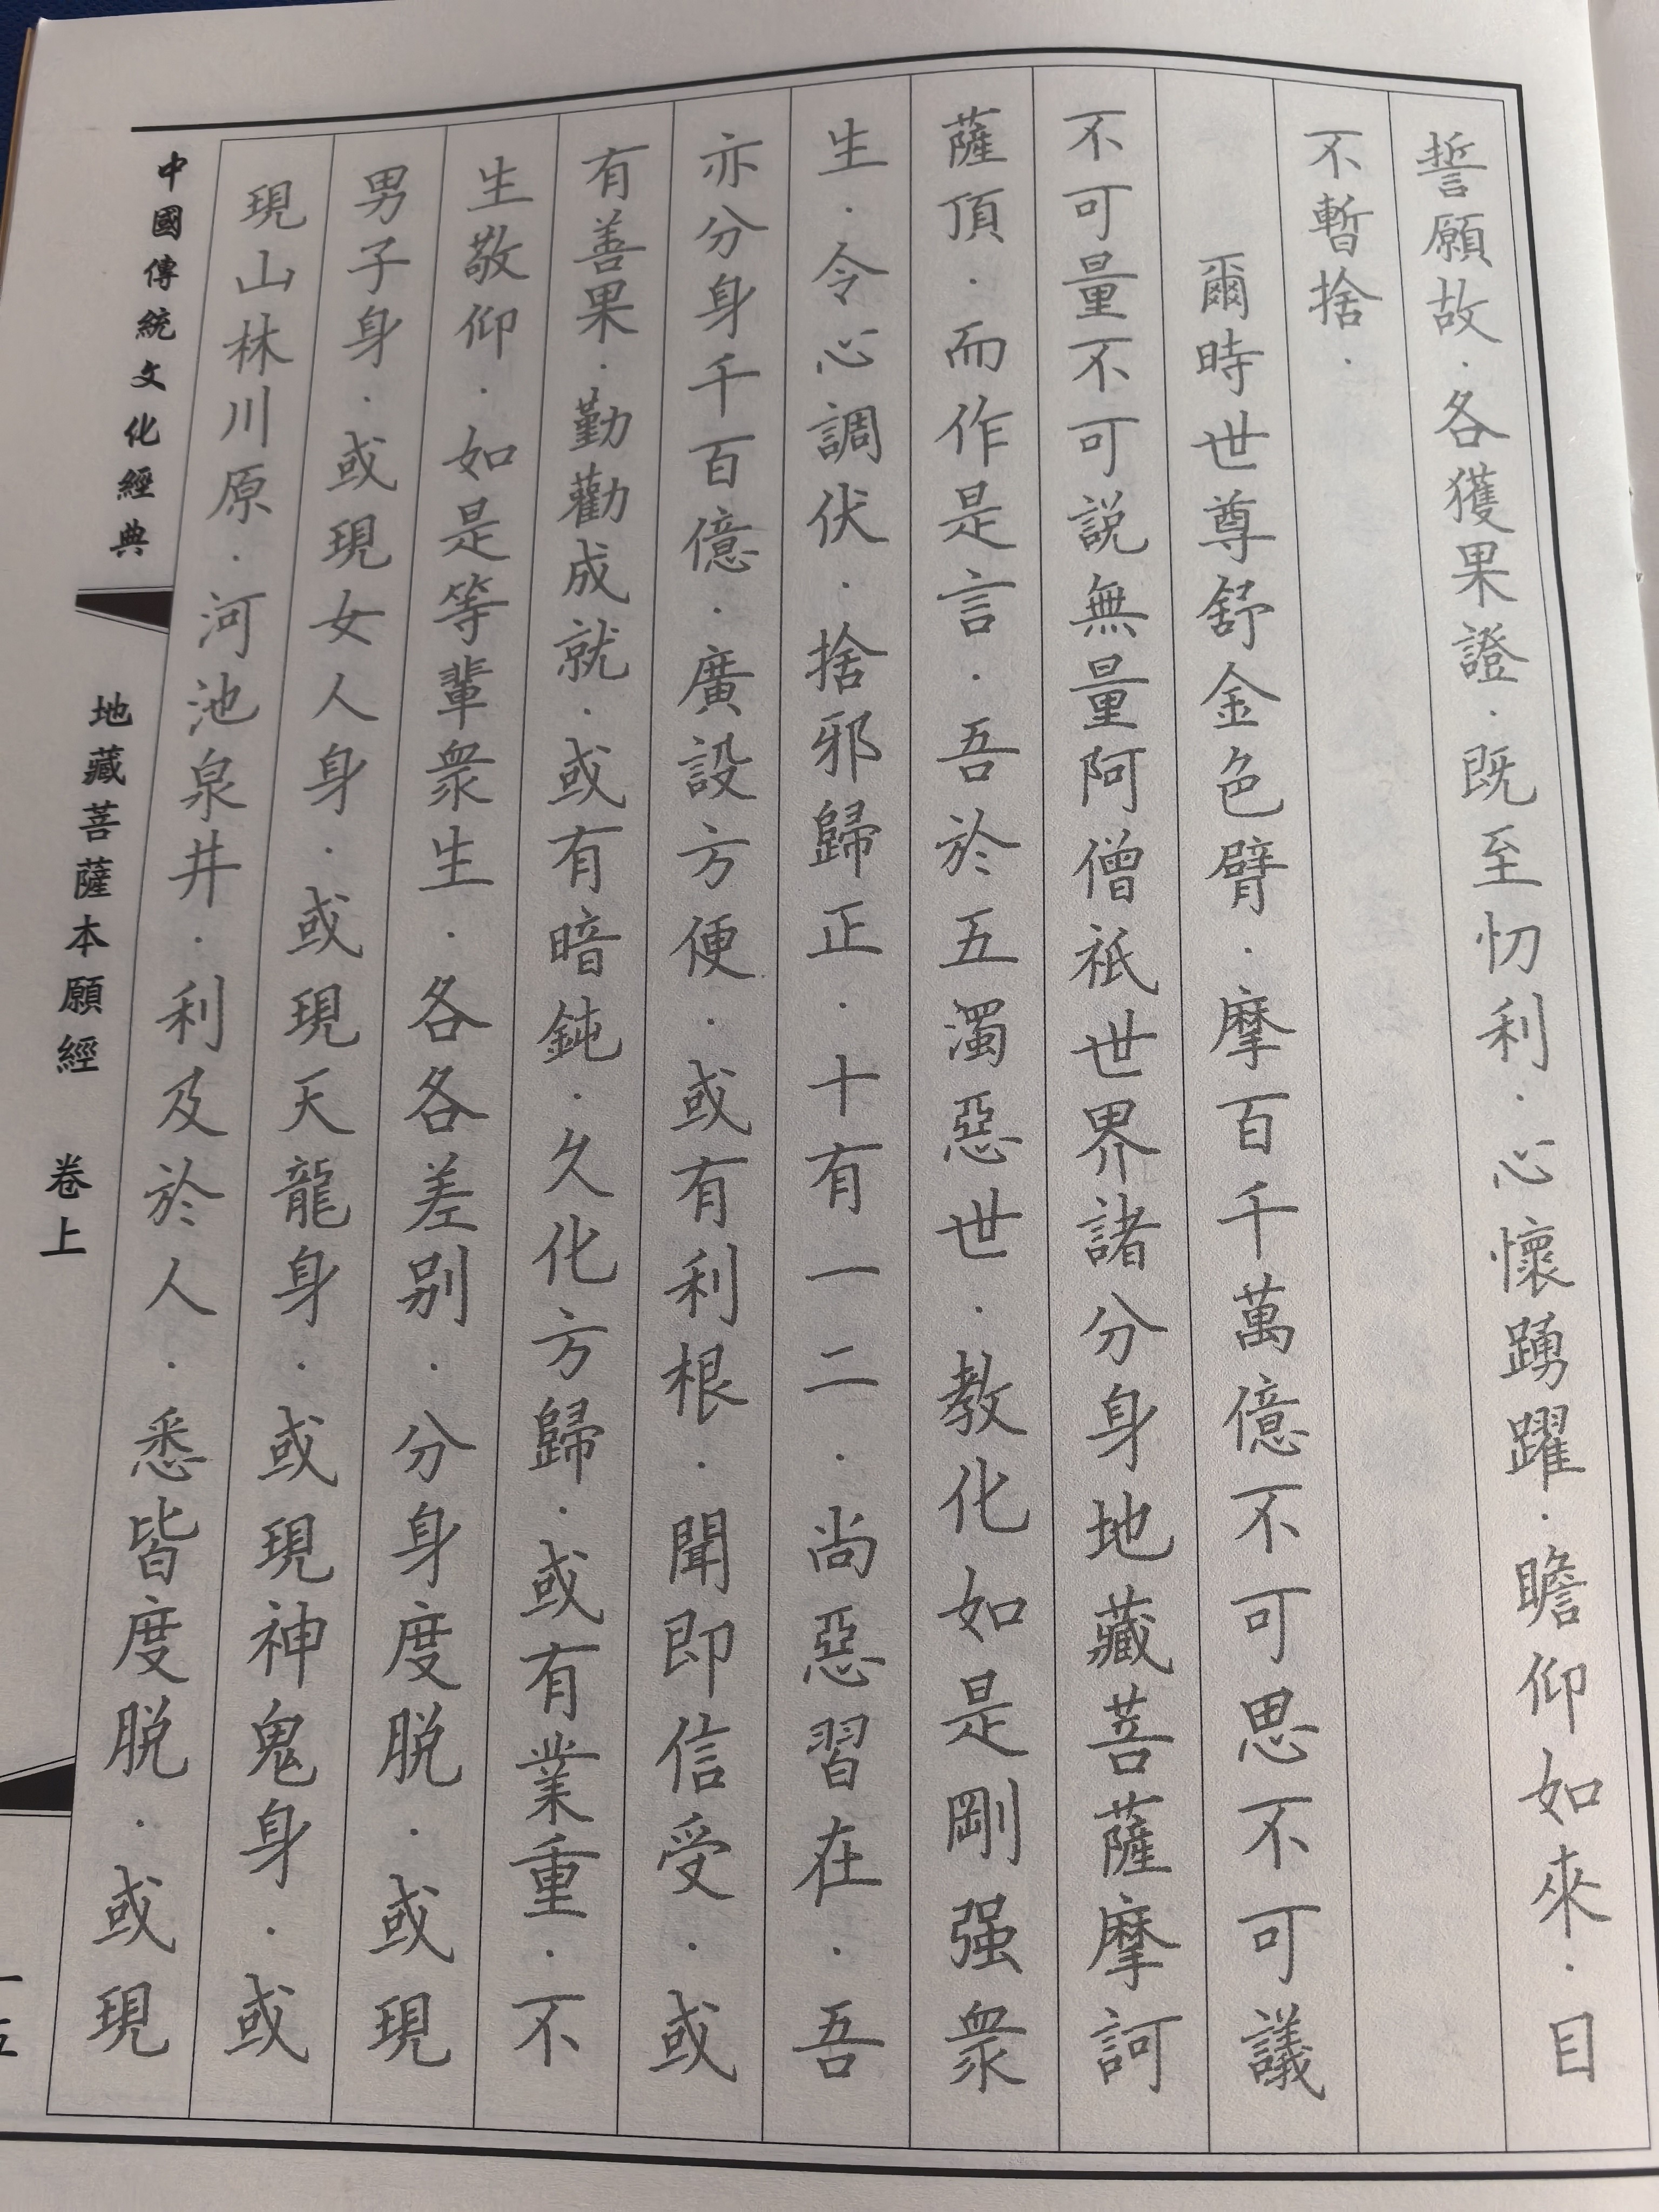 誓願故．各獲果證．既至忉利．心懷踴躍．瞻仰如來．目
不暫捨．
爾時世尊舒金色臂．摩百千萬億不可思不可議
不可量不可説無量阿僧祇世界諸分身地藏菩薩摩訶
薩頂．而作是言．吾於五濁惡世．教化如是剛强衆
生．令心調伏．捨邪歸正．十有一二．尚惡習在．吾
亦分身千百億．廣設方便．或有利根．聞即信受．或
有善果．勤勸成就．或有暗鈍．久化方歸．或有業重．不
生敬仰．如是等輩衆生．各各差别．分身度脱．或現
男子身．或現女人身．或現天龍身．或現神鬼身．或
現山林川原．河池泉井．利及於人．悉皆度脱．或現
中國傳統文化經典
地藏菩薩本願經 卷上